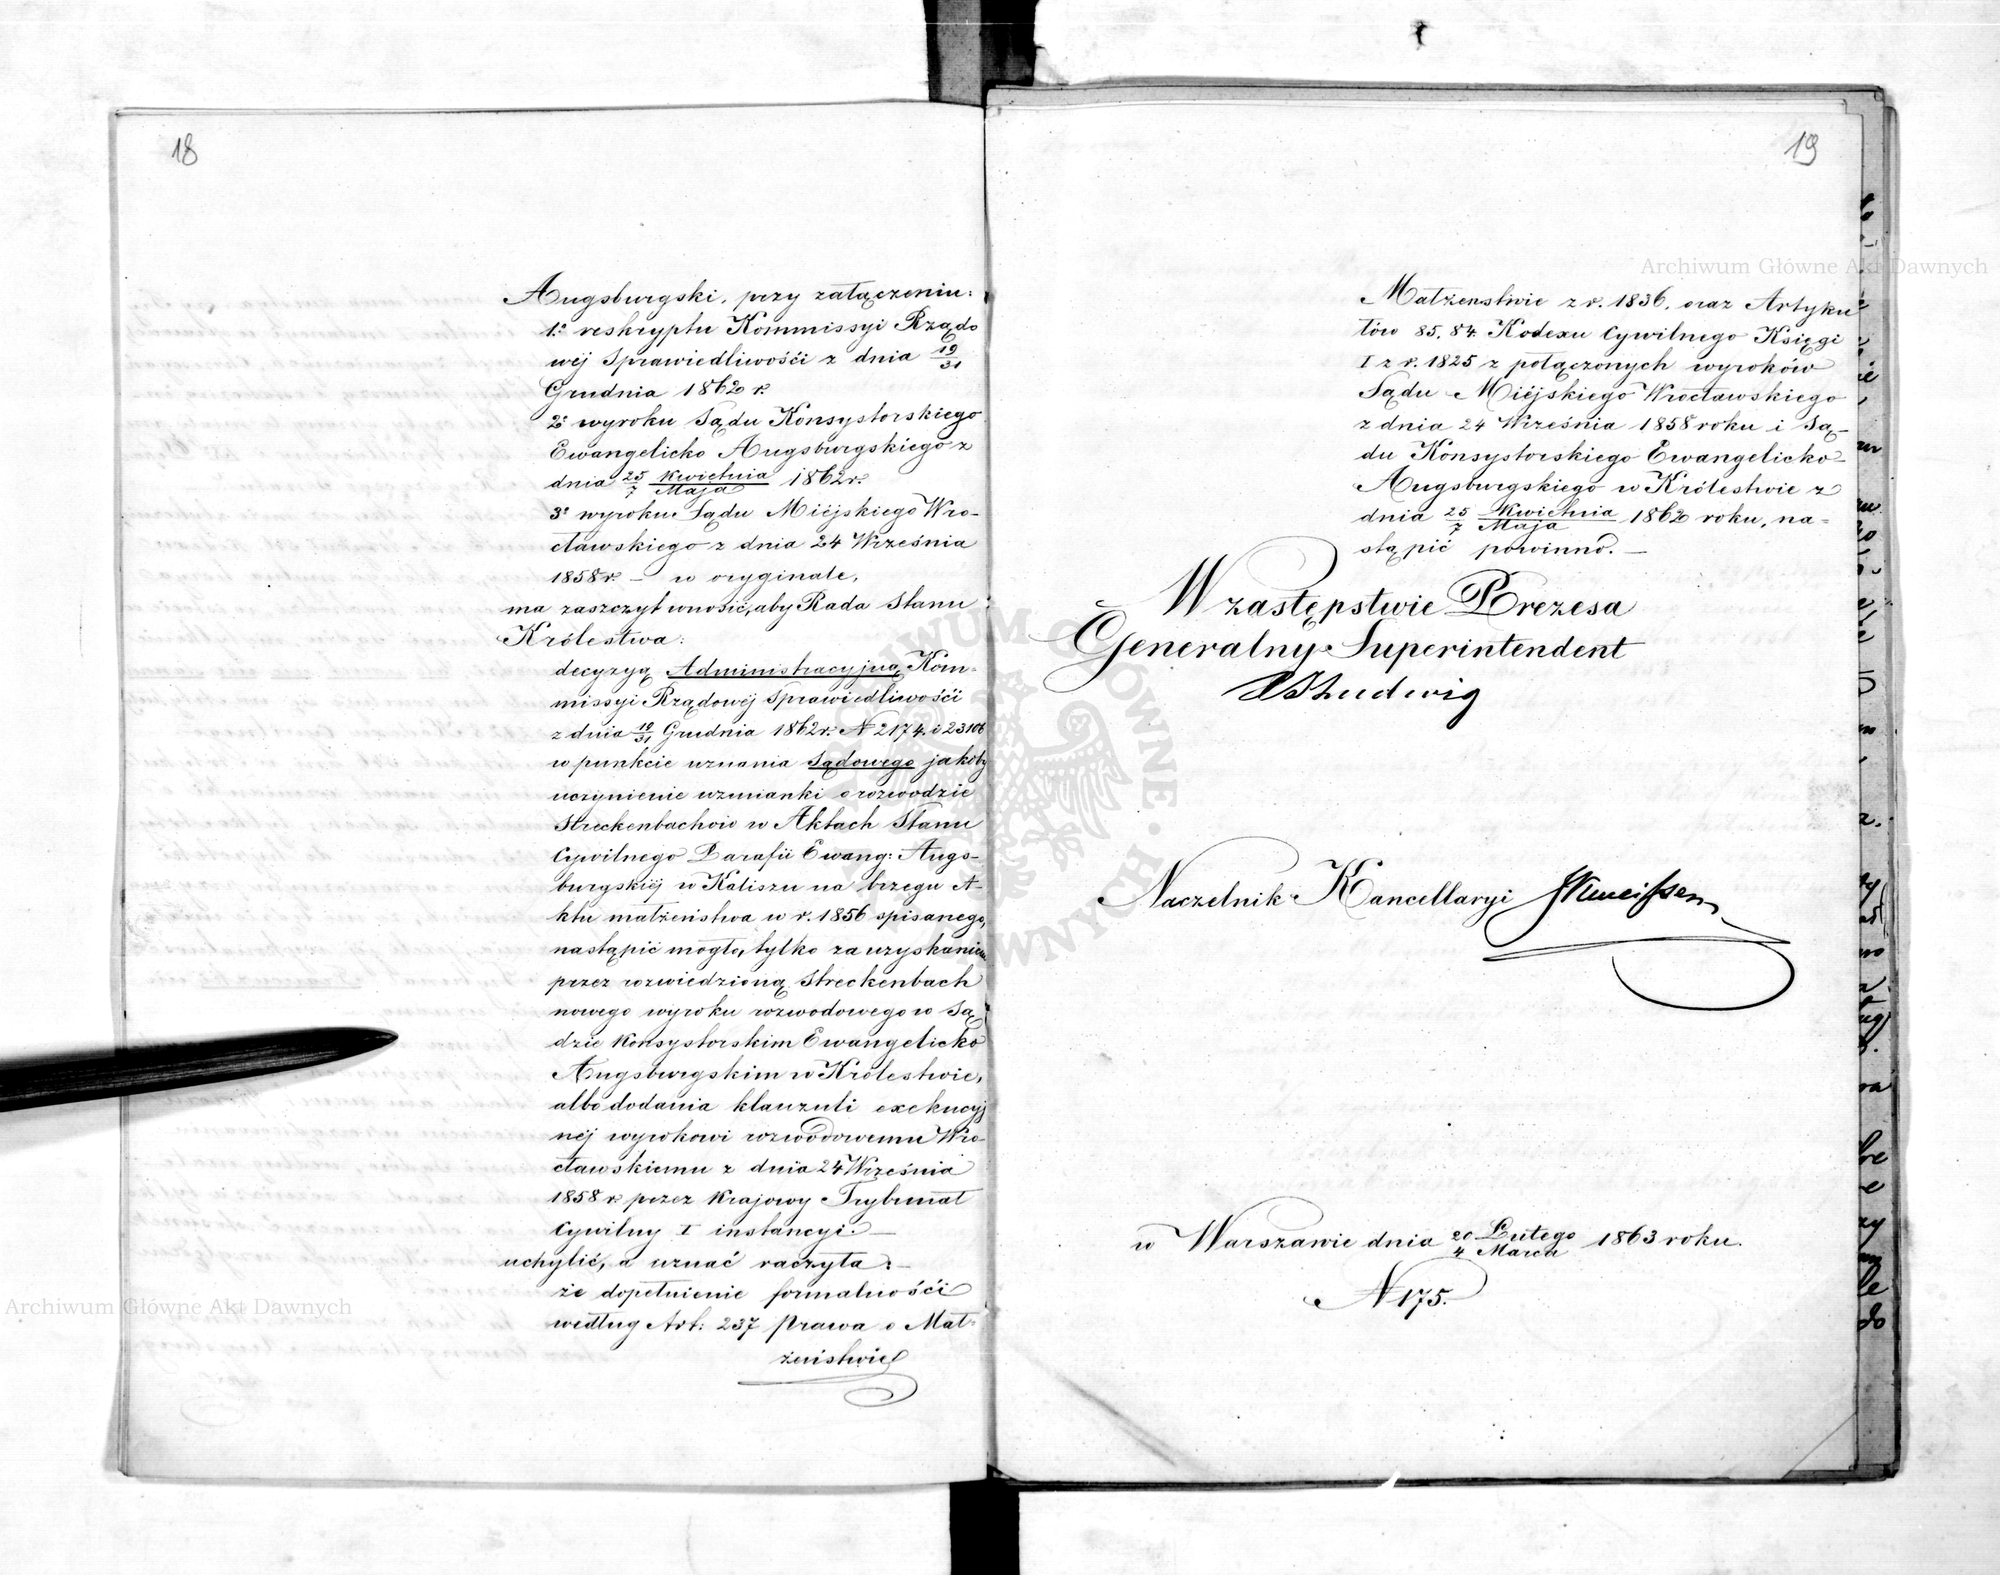 18
Augsburgski, przy załączeniu:
1º reskryptu Kommissyi Rządo
wéj Sprawiedliwości z dnia 19/31
Grudnia 1862 r.
2º wyroku Sądu Konsystorskiego
Ewangelicko Augsburgskiego z
dnia 25/7 Kwietnia/Maja 1862 r.
3º wyroku Sądu Miejskiego Wro-
cławskiego z dnia 24 Września
1858 r. – w oryginale,
ma zaszczyt wnosić, aby Rada Stanu
Królestwa:
decyzyą Administracyjną Kom-
missyi Rządowéj Sprawiedliwości
z dnia 19/31 Grudnia 1862 r. N 2174 i 23106
w punkcie uznania Sądowego jakoby
uczynienie wzmianki o rozwodzie
Streckenbachów w Aktach Stanu
Cywilnego Parafii Ewang: Augs-
burgskiéj w Kaliszu na brzegu A-
ktu małżeństwa w r. 1856 spisanego,
nastąpić mogło, tylko za uzyskaniem
przez rozwiedzioną Streckenbach
nowego wyroku rozwodowego w Są
dzie Konsystorskim Ewangelicko
Augsburgskim w Królestwie,
albo dodania klauzuli exekucyj
néj wyrokowi rozwodowemu Wro-
cławskiemu z dnia 24 Września
1858 r. przez Krajowy Trybunał
Cywilny I instancyi. –
uchylić, a uznać raczyła: –
że dopełnienie formalności
według Art: 237 prawa o Mał-
żeństwie
19
Małżenstwie z r. 1836, oraz Artyku
łów 85, 84 Kodexu Cywilnego Księgi
I z r. 1825 z połączonych wyroków
Sądu Miejskiego Wrocławskiego
z dnia 24 Września 1858 roku i Są-
du Konsystorskiego Ewangelicko
Augsburgskiego w Królestwie z
dnia 25/7 Kwietnia/Maja 1862 roku, na-
stąpić powinno. –
W zastępstwie Prezesa
Generalny Superintendent
Ludwig
Naczelnik Kancellaryi
w Warszawie dnia 20/4 Lutego/Marca 1863 roku.
N 175.
Archiwum Główne Akt Dawnych
Archiwum Główne Akt Dawnych